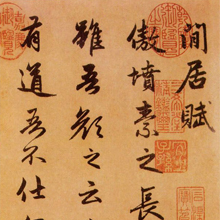 閒居賦
傲墳素之長
雖吾顏之云
有道吾不仕